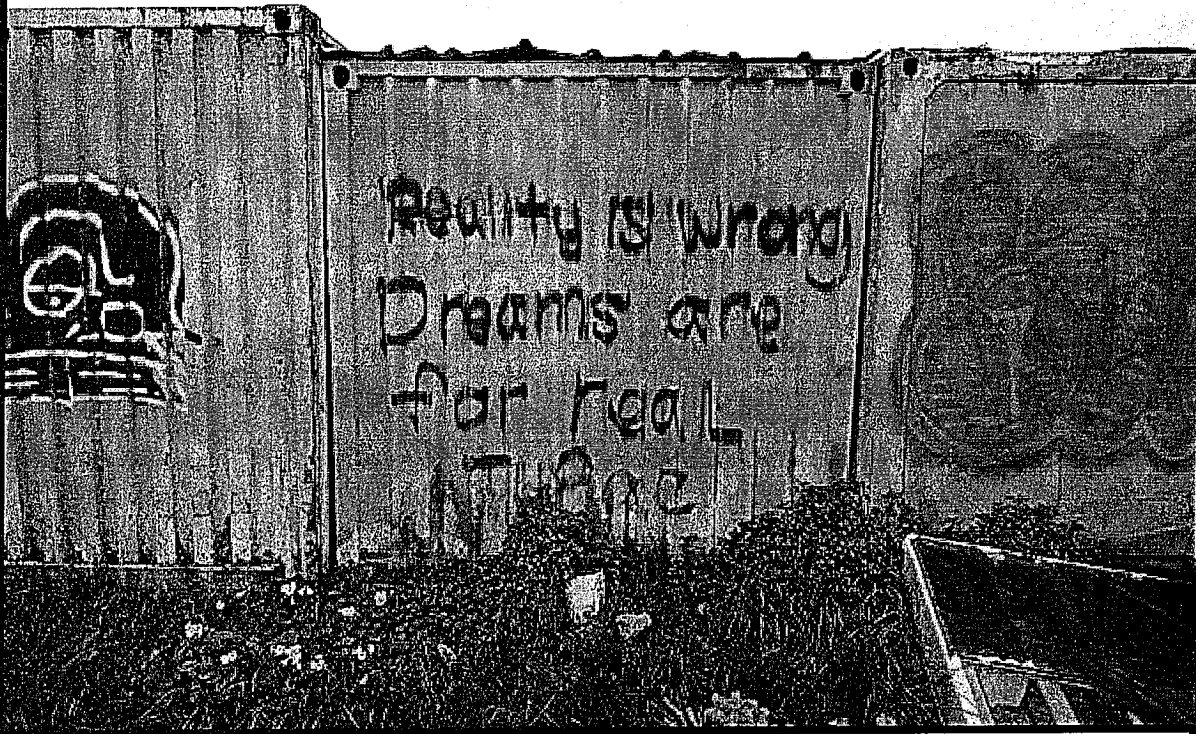 Reality is wrong
Dreams are
for real